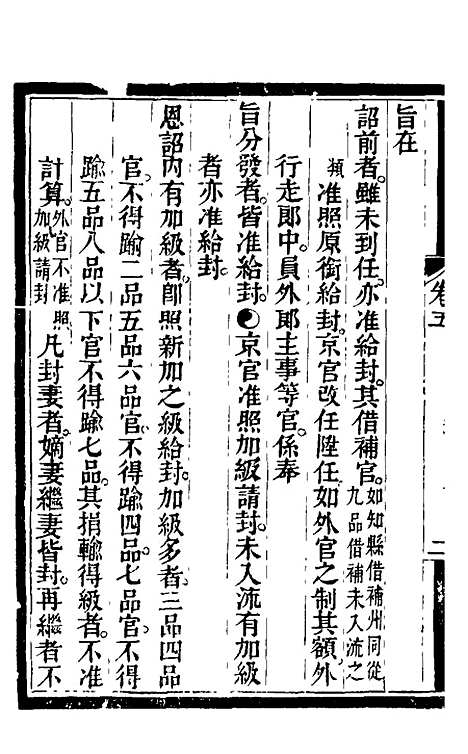 旨在
詔前者雖未到任亦准給封其借補官如知縣借補州同從九品借補未入流之
類准照原銜給封京官改任陞任如外官之制其額外
行走郎中員外郎主事等官係奉
旨分發者皆准給封●京官准照加級請封未入流有加級
者亦准給封
恩詔內有加級者卽照新加之級給封加級多者三品四品
官不得踰二品五品六品官不得踰四品七品官不得
踰五品八品以下官不得踰七品其捐輸得級者不准
計算外官不准照加級請封凡封妻者嫡妻繼妻皆封再繼者不
卷五
二